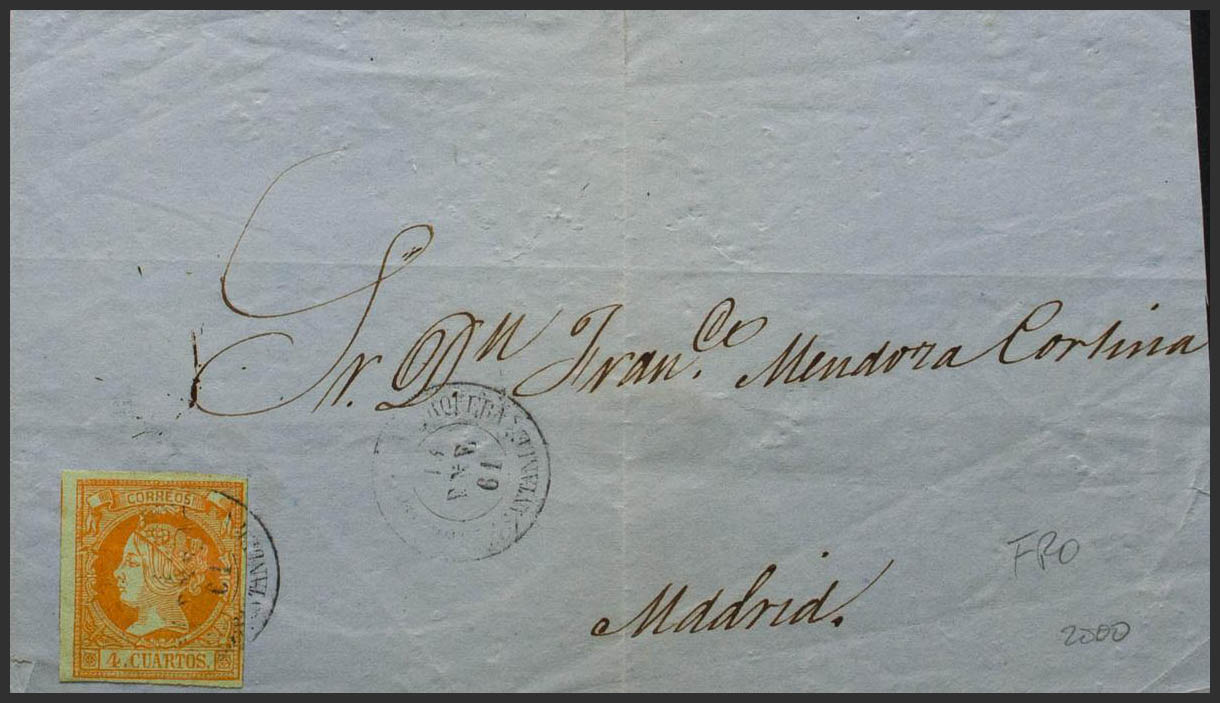 Sr. Dn Franco. Mendoza Cortina
Madrid.
ENE
61
CORREOS
4. CUARTOS.
FRO
2000